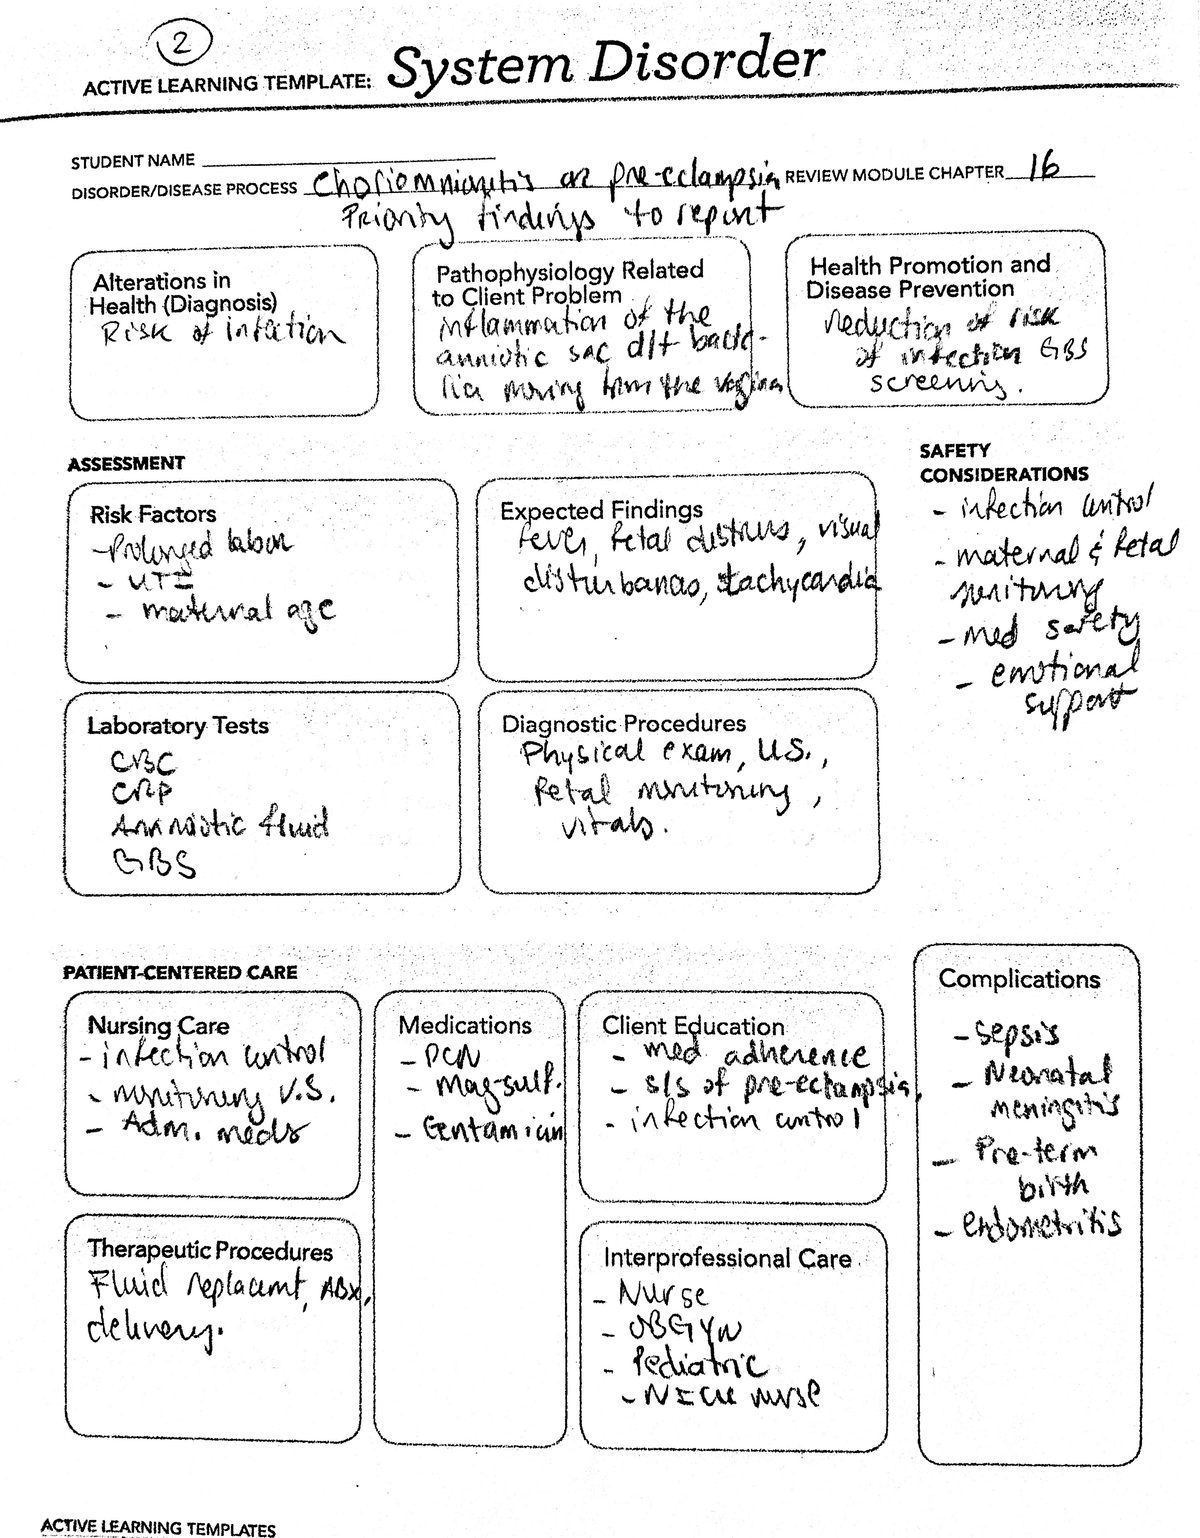 2
ACTIVE LEARNING TEMPLATE: System Disorder
STUDENT NAME
DISORDER/DISEASE PROCESS Choriomnionitis or pre-eclampsia REVIEW MODULE CHAPTER 16
Priority findings to report
Alterations in
Health (Diagnosis)
Risk of infection
Pathophysiology Related
to Client Problem
inflammation of the
amniotic sac d/t bacte-
ria moving from the vagina
Health Promotion and
Disease Prevention
reduction of risk
of infection GBS
screening.
ASSESSMENT
SAFETY
CONSIDERATIONS
- infection control
- maternal & fetal
monitoring
- med safety
- emotional
support
Risk Factors
- Prolonged labor
- UTI
- maternal age
Expected Findings
fever, fetal distress, visual
disturbances, tachycardia
Laboratory Tests
CBC
CRP
Amniotic fluid
GBS
Diagnostic Procedures
Physical exam, U.S.,
Fetal monitoring,
vitals.
PATIENT-CENTERED CARE
Nursing Care
- infection control
- monitoring V.S.
- Adm. meds
Medications
- PCN
- Mag-sulf.
- Gentamicin
Client Education
- med adherence
- s/s of pre-eclampsia,
- infection control
Complications
- Sepsis
- Neonatal
meningitis
- Pre-term
birth
- endometritis
Therapeutic Procedures
Fluid replacemt, ABX,
delivery.
Interprofessional Care
- Nurse
- OBGYN
- Pediatric
- NICU nurse
ACTIVE LEARNING TEMPLATES